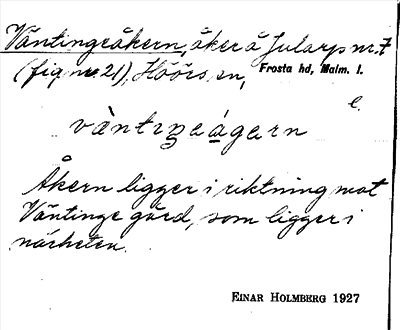 Väntingeåkern, åker å Jularp nr. 7
(fig nr. 21), Höörs sn, Frosta hd, Malm. l.
e.
vàntıngeágern
Åkern ligger i riktning mot
Väntinge gård, som ligger i
närheten.
EINAR HOLMBERG 1927